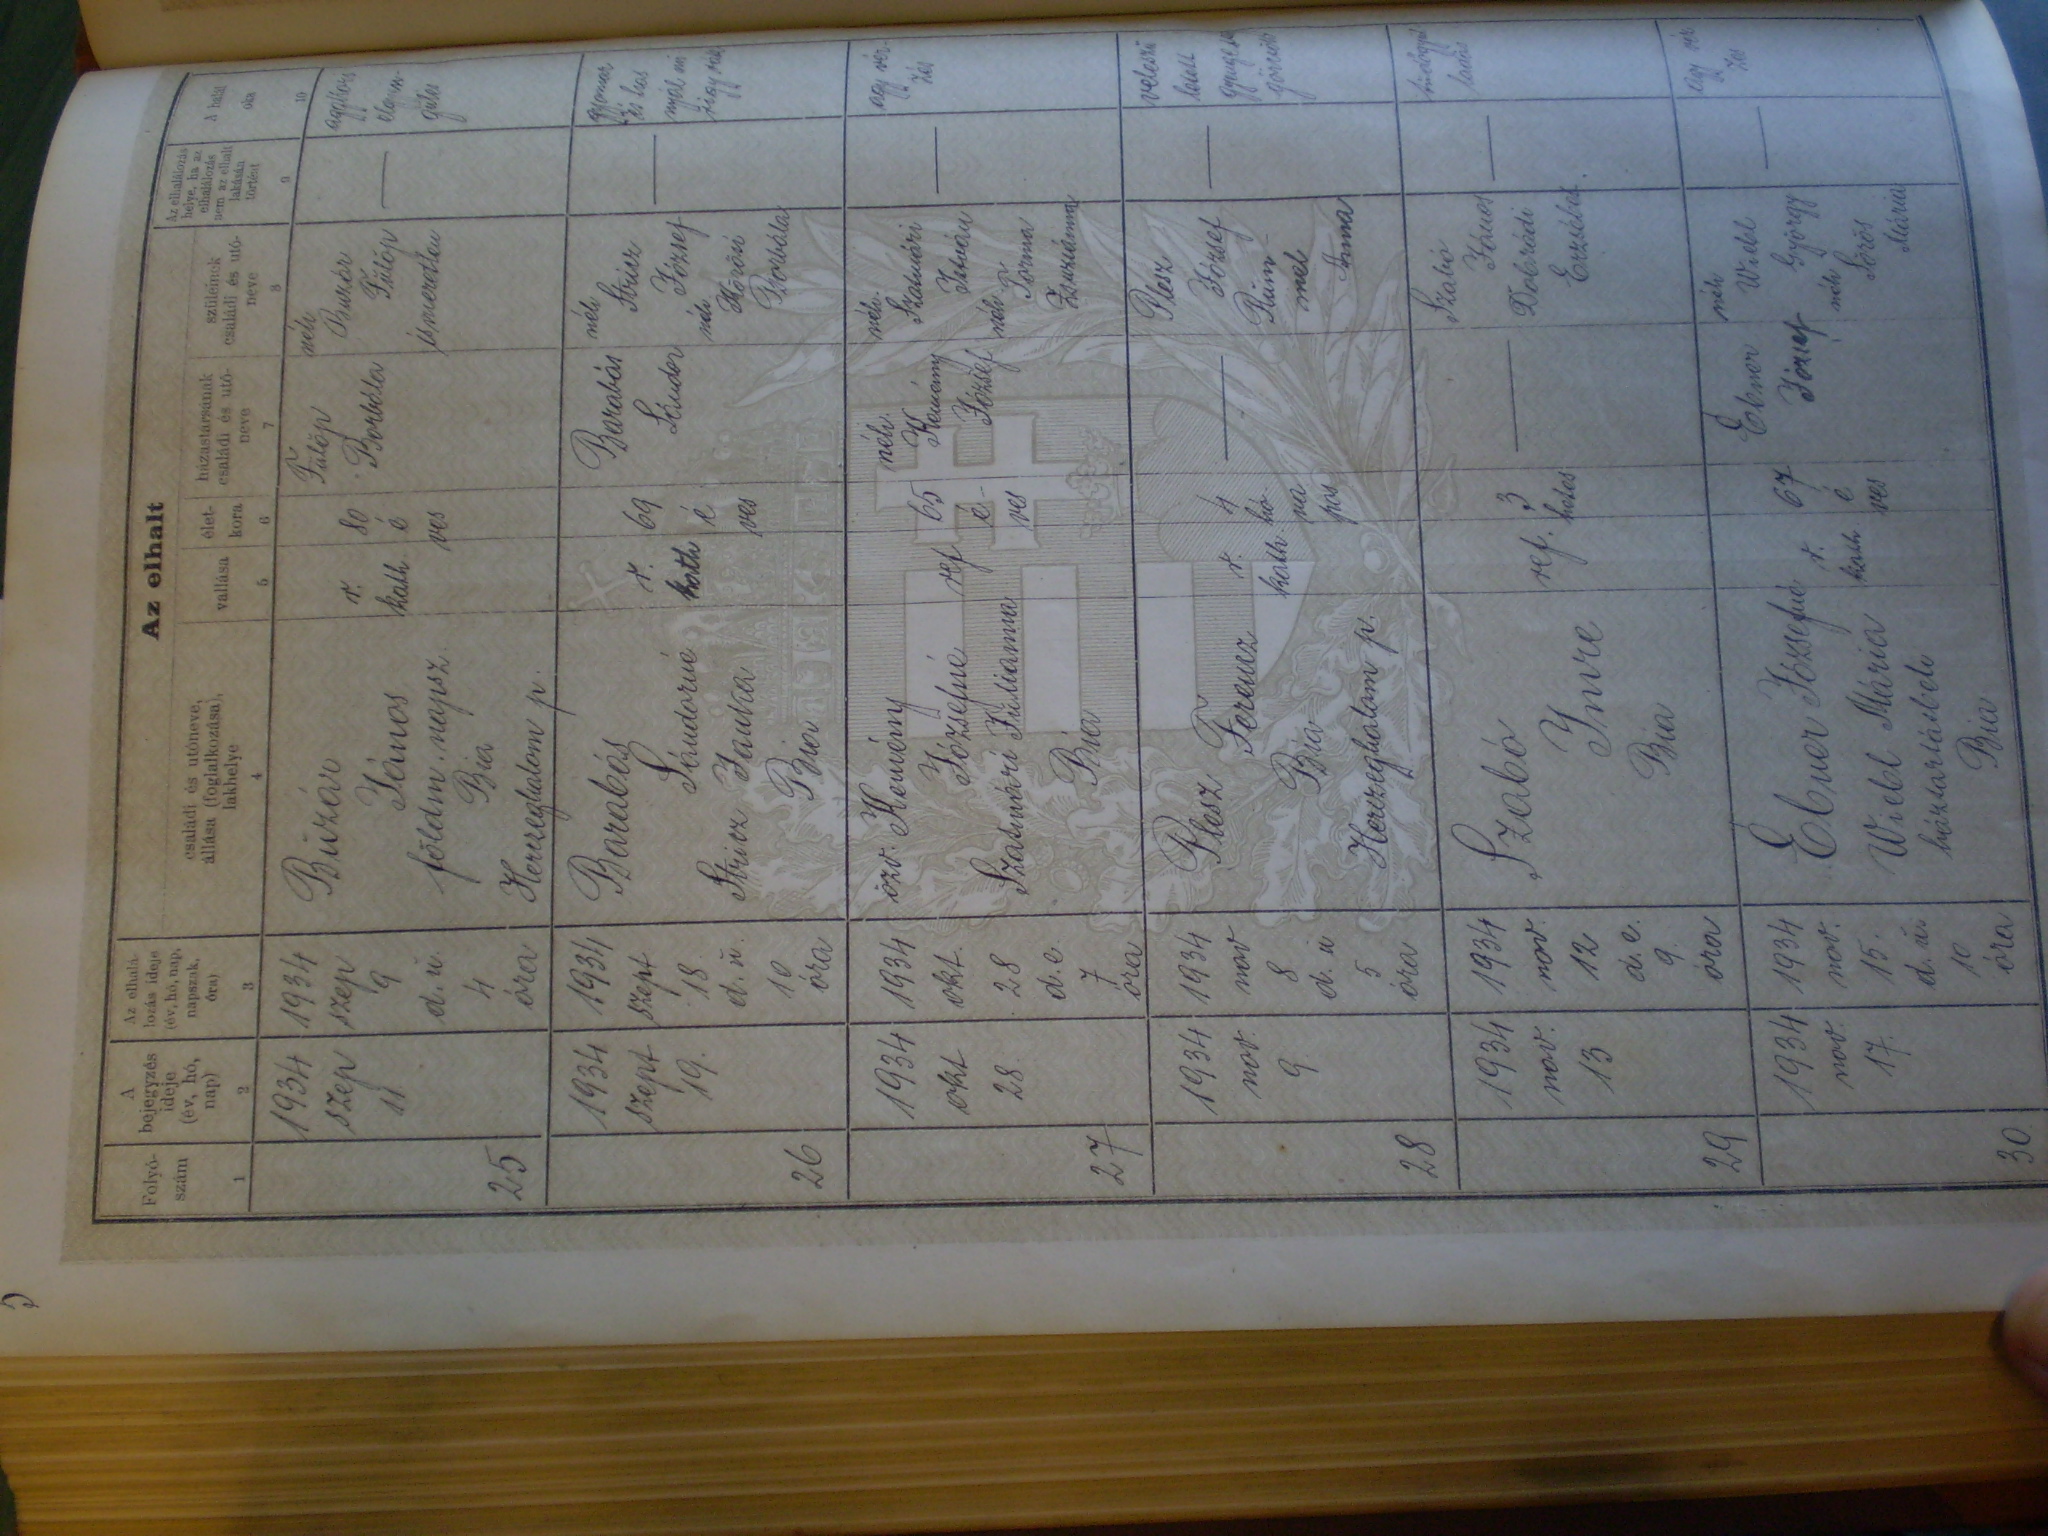 Az elhalt
Folyó-
szám
A
bejegyzés
ideje
(év, hó,
nap)
Az elhalá-
lozás ideje
(év, hó, nap,
napszak,
óra)
családi és utóneve,
állása (foglalkozása),
lakhelye
vallása
élet-
kora
házastársának
családi és utó-
neve
szüleinek
családi és utó-
neve
Az elhalálozás
helye, ha az
elhalálozás
nem az elhalt
lakásán
történt
A halál
oka
1
2
3
4
5
6
7
8
9
10
25
1934
szep
11
1934
szep
9
d. u.
4
óra
Buzár
János
földm. napsz.
Bia
Herceghalom p.
r.
kath.
80
é
ves
Fülöp
Borbála
néh
Buzár
Fülöp
ismeretlen
—
aggkori
elgyen-
gülés
26
1934
szept
19.
1934
szept
18.
d. u.
10
óra
Barabás
Sándorné
Stricz Janka
Bia
r.
kath
69
é
ves
Barabás
Sándor
néh
József
néh
Borbála
—
gyomor
és has
27
1934
okt
28
1934
okt.
28
d. e.
7
óra
özv. Kemény
Józsefné
Szatmári Julianna
Bia
ref
65
é-
ves
néh.
Kemény
József
néh.
Szatmári
István
néh
Zsuzsánna
—
agy vér-
zés
28
1934
nov.
9.
1934
nov
8
d. u
5
óra
Plesz
Ferencz
Bia
Herczeghalom p.
r.
kath.
4
hó-
na
pos
—
Plesz
József
Anna
—
veleszü
letett
gyengeség
29
1934
nov.
13
1934
nov.
12
d. e.
9.
óra
Szabó
Imre
Bia
ref.
3
hetes
—
Szabó
János
Dobrádi
Erzsébet
—
30
1934
nov.
17.
1934
nov.
15.
d. u.
10
óra
Ebner Józsefné
Wiebl Mária
háztartásbeli
Bia
r.
kath
67
é
ves
Ebner
József
néh
György
néh
Mária
—
agy vér
zés